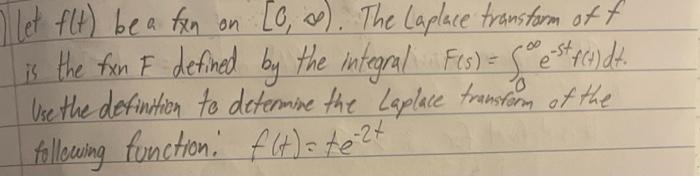 ) let f(t) be a fxn on [0, ∞). The Laplace transform of f
is the fxn F defined by the integral F(s) = ∫₀^∞ e^-st f(t)dt.
Use the definition to determine the Laplace transform of the
following function: f(t) = te^-2t